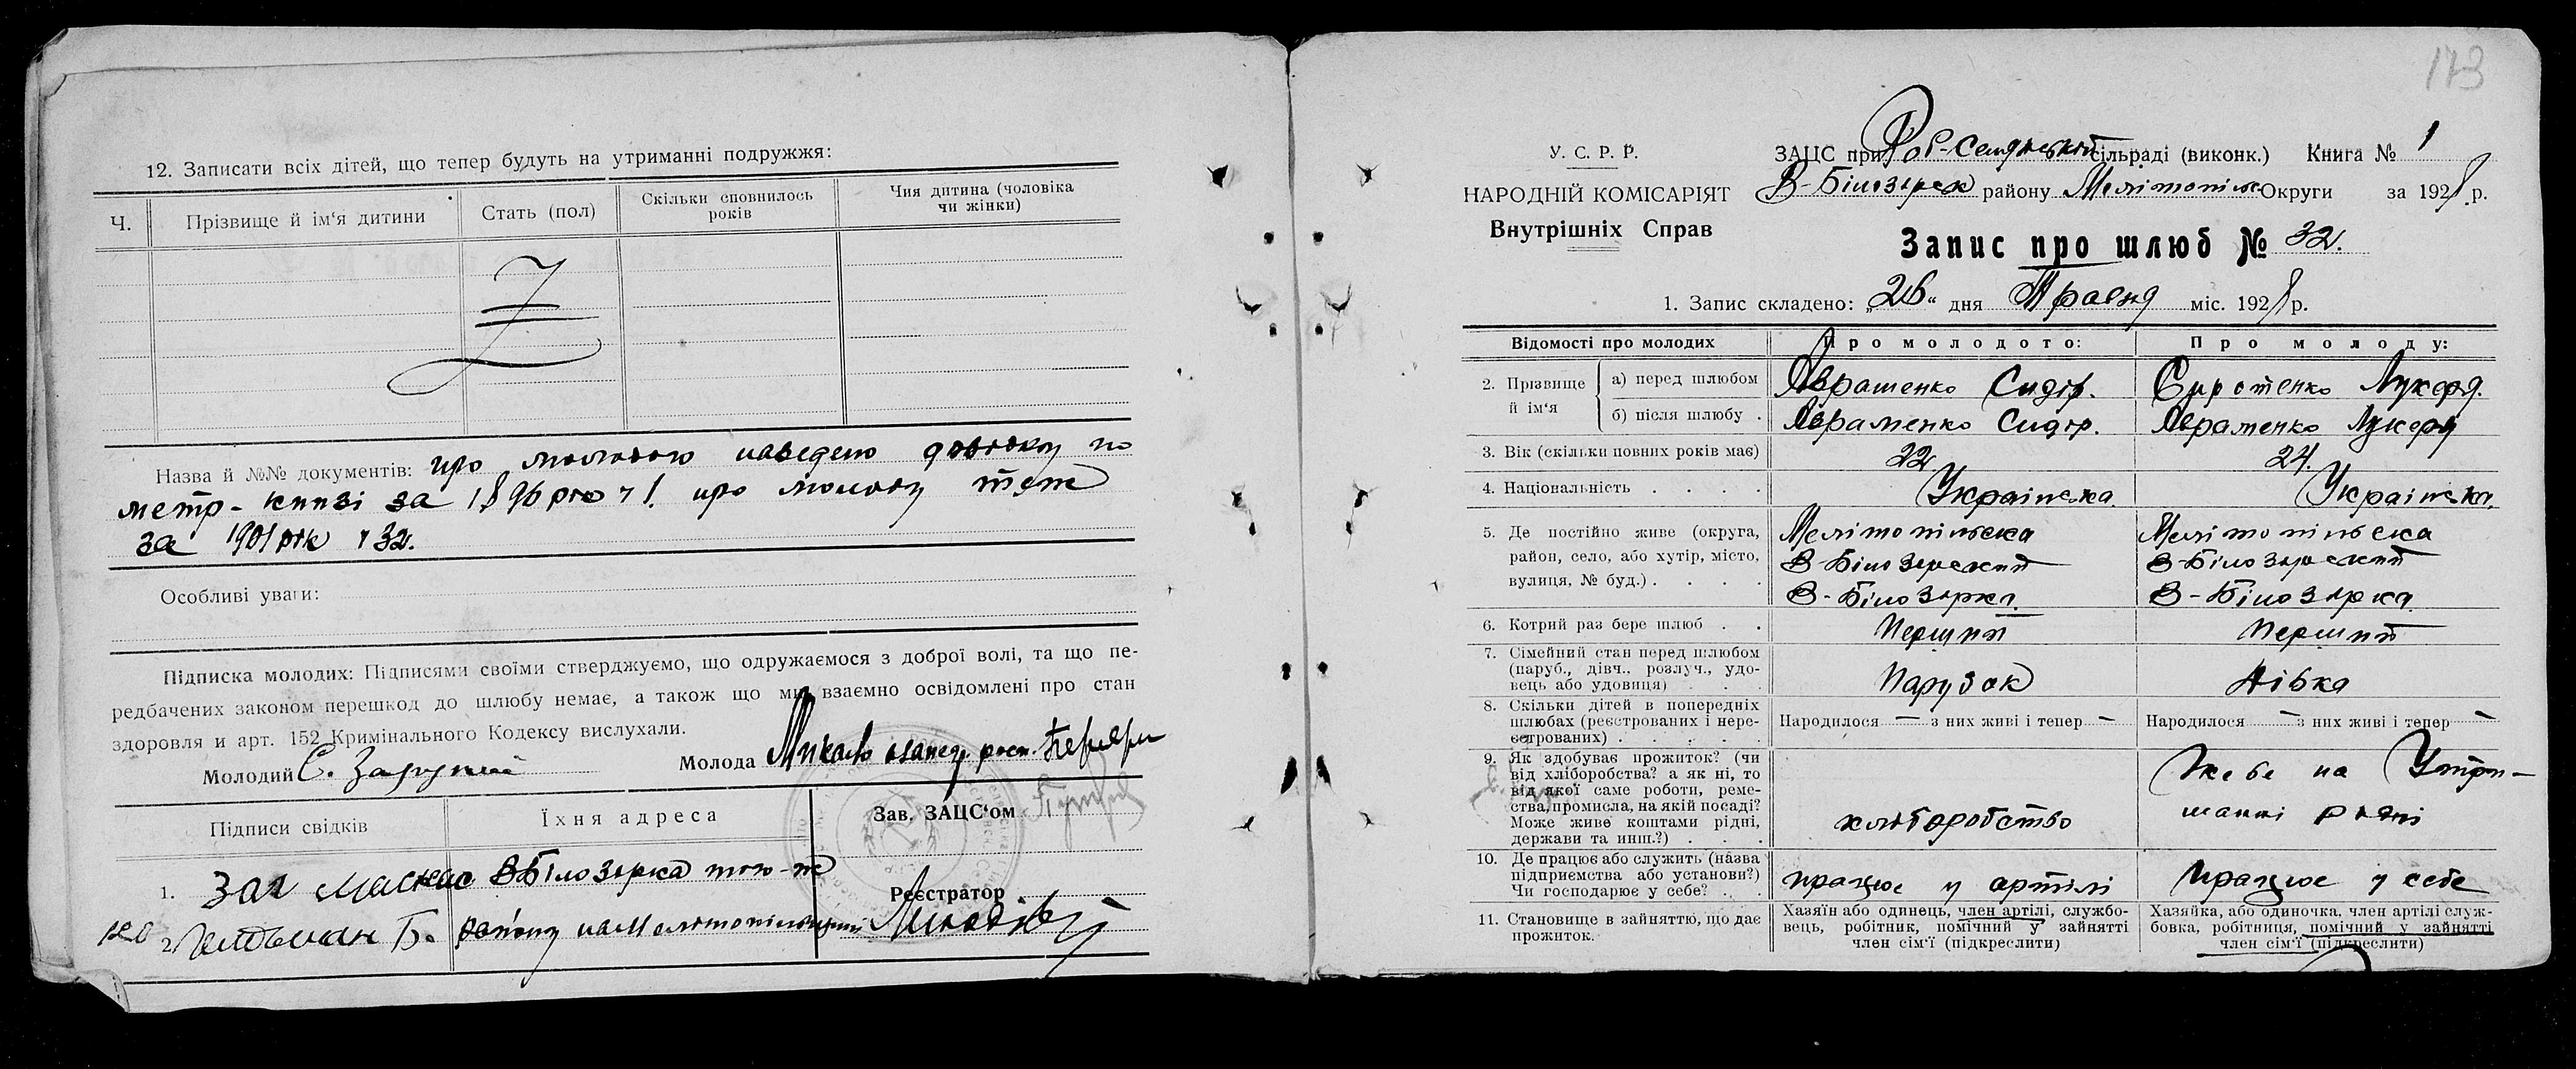 12. Записати всіх дітей, що тепер будуть на утриманні подружжя:
Ч.
Прізвище й ім'я дитини
Стать (пол)
Скільки сповнилось
років
Чия дитина (чоловіка
чи жінки)
Назва й №№ документів: про молодого наведено довідку по
метр-книзі за 1896 рік ч 1. про молоду теж
за 1901 рік ч 32.
Особливі уваги:
Підписка молодих: Підписями своїми стверджуємо, що одружаємося з доброї волі, та що пе-
редбачених законом перешкод до шлюбу немає, а також що ми взаємно освідомлені про стан
здоровля и арт. 152 Кримінального Кодексу вислухали.
Молодий С.
Молода
Підписи свідків
Їхня адреса
Зав. ЗАЦС'ом
1. В Білозірка того-ж
2. Б. району на Мелітопільщині
Реєстратор
173
У. С. Р. Р.
НАРОДНІЙ КОМІСАРІЯТ
Внутрішніх Справ
ЗАЦС при сільраді (виконк.) Книга № 1
В-Білозірск району Мелітопіль Округи за 1928 р.
Запис про шлюб № 32.
1. Запис складено: „26“ дня Травня міс. 1928 р.
Відомості про молодих
Про молодого:
Про молоду:
2. Прізвище й ім'я
а) перед шлюбом
Авраменко Сидір.
Сиротенко Лукеря.
б) після шлюбу .
Авраменко Сидір.
Авраменко Лукеря
3. Вік (скільки повних років має)
22
24.
4. Національність . . . .
Українська.
Українська.
5. Де постійно живе (округа,
район, село, або хутір, місто,
вулиця, № буд.) . . . .
Мелітопільска
В-Білозірский
В-Білозірка.
Мелітопільска
В-Білозірский
В-Білозірка.
6. Котрий раз бере шлюб . .
Перший
Перший
7. Сімейний стан перед шлюбом
(паруб., дівч., розлуч., удо-
вець або удовиця) . . .
Парубок
Дівка
8. Скільки дітей в попередніх
шлюбах (реєстрованих і нере-
єстрованих) . . . . .
Народилося — з них живі і тепер —
Народилося — з них живі і тепер —
9. Як здобуває прожиток? (чи
від хліборобства? а як ні, то
від якої саме роботи, реме-
ства, промисла, на якій посаді?
Може живе коштами рідні,
держави та инш.?) . . .
хліборобство
Живе на Утри-
манні рідні
10. Де працює або служить (назва
підприємства або установи?)
Чи господарює у себе? . .
працює у артілі
Працює у себе
11. Становище в зайняттю, що дає
прожиток.
Хазяїн або одинець, член артілі, службо-
вець, робітник, помічний у зайнятті
член сім'ї (підкреслити)
Хазяйка, або одиночка, член артілі служ-
бовка, робітниця, помічний у зайнятті
член сім'ї (підкреслити)